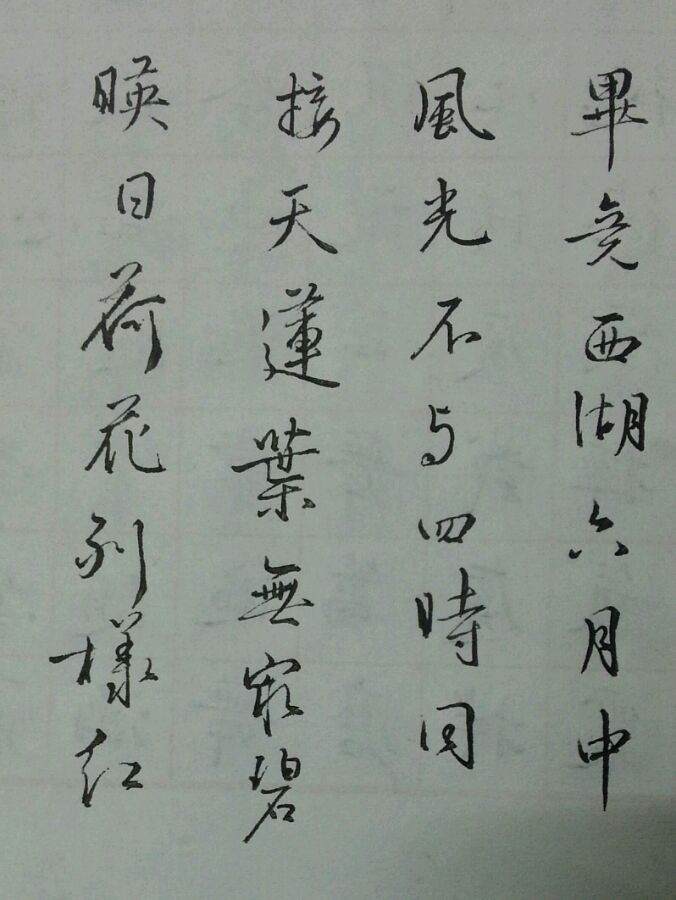 畢竟西湖六月中
風光不与四時同
接天蓮葉無窮碧
暎日荷花別樣紅